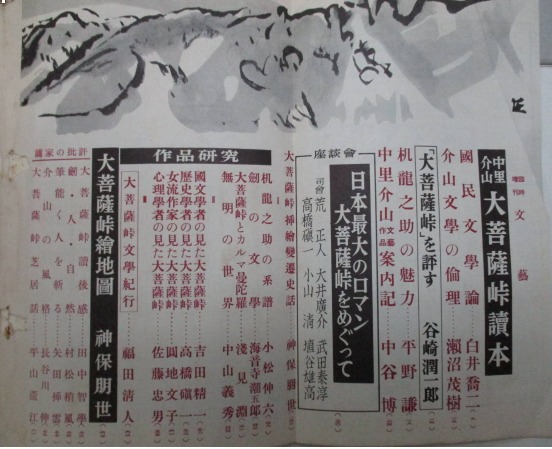 臨時増刊 文藝
中里介山 大菩薩峠讀本
國民文學論 白井喬二
介山文學の倫理 瀬沼茂樹
「大菩薩峠」を評す 谷崎潤一郎
机龍之助の魅力 平野謙
中里介山文藝作品案内記 中谷博
座談會
日本最大のロマン
大菩薩峠をめぐって
司會 荒正人 大井廣介 武田泰淳
高橋磌一 小山清 埴谷雄高
大菩薩峠挿繪變遷史話 神保朋世
作品研究
机龍之助の系譜 小松伸六
劍の文學 海音寺潮五郎
大菩薩峠とカルマ曼陀羅 淺見淵
無明の世界 中山義秀
國文學者の見た大菩薩峠 吉田精一
歴史學者の見た大菩薩峠 高橋磌一
女流作家の見た大菩薩峠 圓地文子
心理學者の見た大菩薩峠 佐藤忠男
大菩薩峠文學紀行 福田清人
大菩薩峠繪地圖 神保朋世
諸家の批評
大菩薩峠讀後感 田中智學
劍・人・自然 村松梢風
筆能く人を斬る 矢田挿雲
介山の風格 長谷川伸
大菩薩峠芝居話 平山蘆江